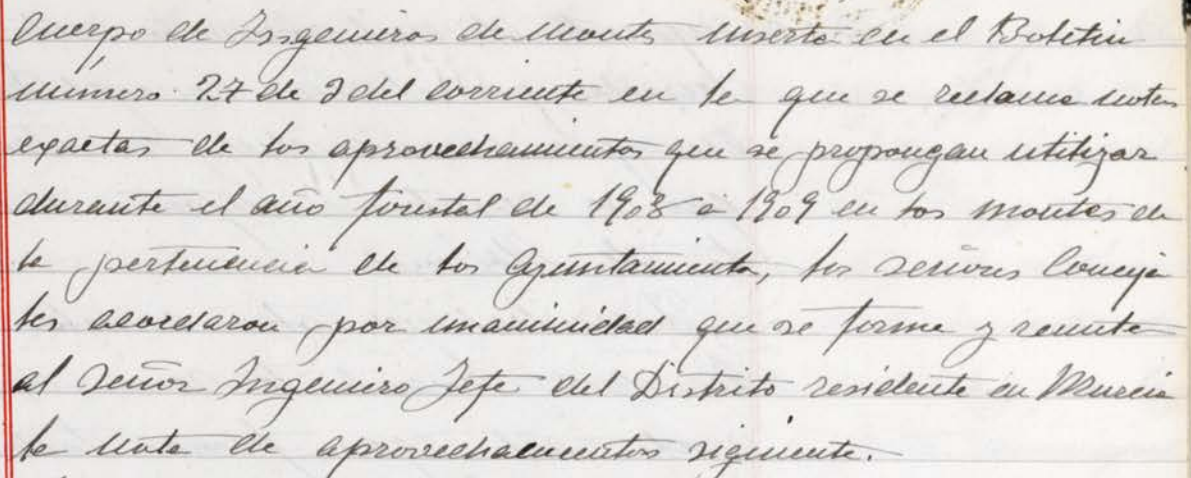 Cuerpo de Ingenieros de Montes inserta en el Boletin
número 27 de 2 del corriente en la que se reclama notas
exactas de los aprovechamientos que se propongan utilizar
durante el año forestal de 1908 a 1909 en los montes de
la pertenencia de los Ayuntamientos, los señores Conceja
les acordaron por unanimidad que se forme y remita
al Señor Ingeniero Jefe del Distrito residente en Murcia
la nota de aprovechamientos siguiente.